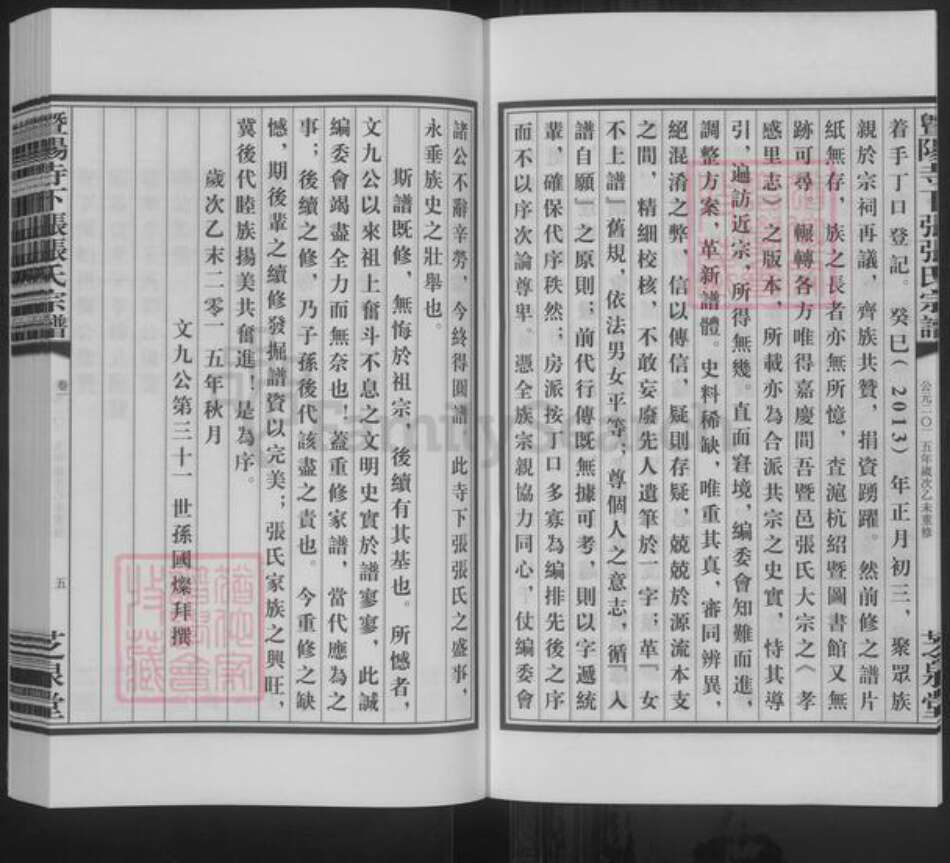 暨陽寺下張張氏宗譜
公元二〇一五年歲次乙未重修
芝泉堂
着手丁口登記。癸巳(2013)年正月初三,聚眾族
親於宗祠再議,齊族共贊,捐資踴躍。然前修之譜片
紙無存,族之長者亦無所憶,查滬杭紹暨圖書館又無
跡可尋。輾轉各方唯得嘉慶間吾暨邑張氏大宗之《孝
感里志》之版本,所載亦為合派共宗之史實,恃其導
引,遍訪近宗,所得無幾。直面窘境,編委會知難而進,
調整方案,革新譜體。史料稀缺,唯重其真,審同辨異,
絕混淆之弊,信以傳信,疑則存疑,兢兢於源流本支
之間,精細校核,不敢妄廢先人遺筆於一字;革『女
不上譜』舊規,依法男女平等,尊個人之意志,循『人
譜自願』之原則;前代行傳既無據可考,則以字遞統
輩,確保代序秩然;房派按丁口多寡為編排先後之序
而不以序次論尊卑。憑全族宗親協力同心,仗編委會
諸公不辭辛勞,今終得圓譜,此寺下張張氏之盛事,
永垂族史之壯舉也。
斯譜既修,無悔於祖宗,後續有其基也。所憾者,
文九公以來祖上奮斗不息之文明史實於譜寥寥,此誠
編委會竭盡全力而無奈也!蓋重修家譜,當代應為之
事;後續之修,乃子孫後代該盡之責也。今重修之缺
憾,期後輩之續修發掘譜資以完美;張氏家族之興旺,
冀後代睦族揚美共奮進!是為序。
歲次乙未二零一五年秋月
文九公第三十一世孫國燦拜撰
暨陽寺下張張氏宗譜
卷一
五
芝泉堂
FamilySearch